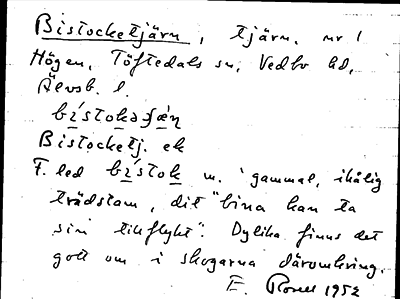 Bistocketjärn, tjärn, nr 1
Högen, Töftedals sn, Vedbo hd,
Älvsb. l.
bìstokəʃæ̀ṇ
Bistocketj. ek
F. led bìstok m. 'gammal, ihålig
trädstam, dit "bina kan ta
sin tillflykt". Dylika finns det
gott om i skogarna däromkring.
E. 1952